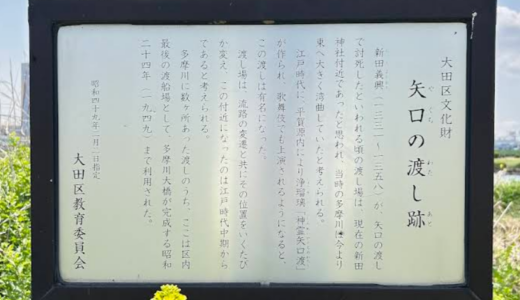 大田区文化財
矢口の渡し跡
やぐち わた あと
新田義興(一三三一〜一三五八)が、矢口の渡し
で討死したといわれる頃の渡し場は、現在の新田
神社付近であったと思われ、当時の多摩川は今より
東へ大きく湾曲していたと考えられる。
江戸時代に、平賀源内により浄瑠璃「神霊矢口渡」
が作られ、歌舞伎でも上演されるようになると、
この渡しは有名になった。
渡し場は、流路の変遷と共にその位置をいくたび
か変え、この付近になったのは江戸時代中期から
であると考えられる。
多摩川に数ヶ所あった渡しのうち、ここは区内
最後の渡船場として、多摩川大橋が完成する昭和
二十四年(一九四九)まで利用された。
昭和四十九年二月二日指定
大田区教育委員会